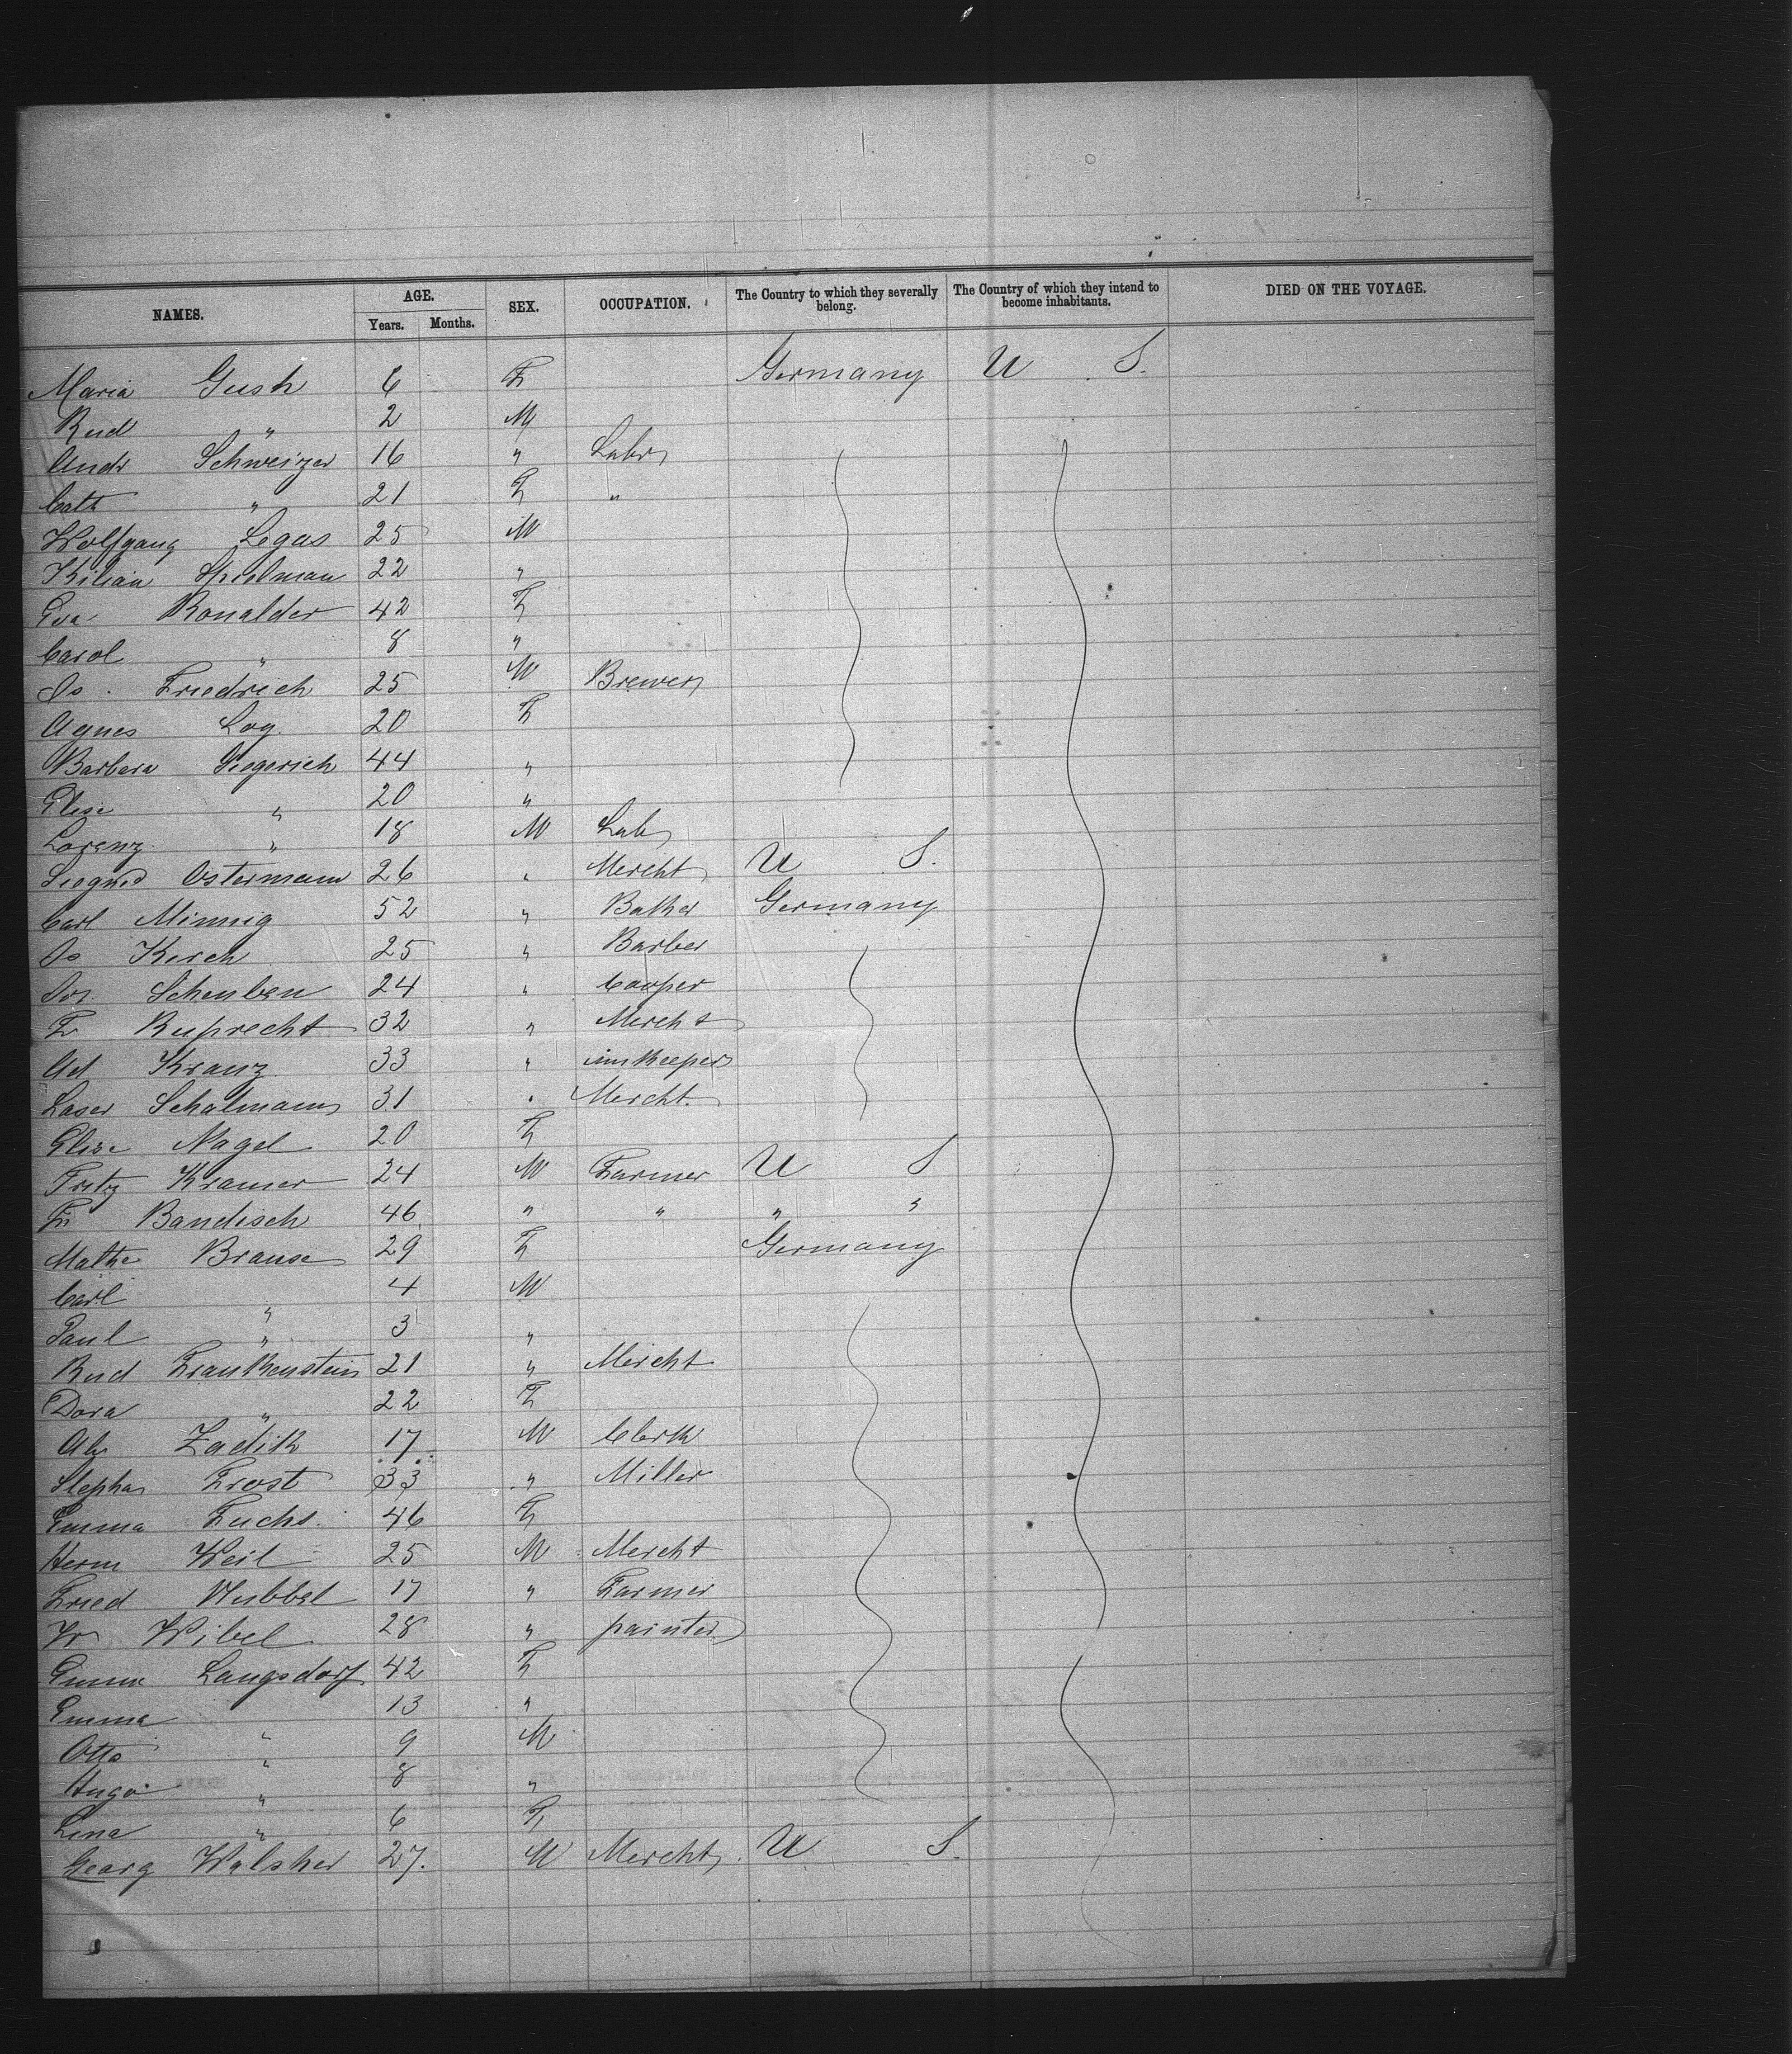 NAMES. AGE. Years. Months. SEX. OCCUPATION. The Country to which they severally belong. The Country of which they intend to become inhabitants. DIED ON THE VOYAGE.
Maria Gush 6 F Germany U S.
Rud " 2 M
Andr Schweizer 16 " Labr
Cath " 21 F "
Wolfgang Legas 25 M
Kilian Spielman 22 "
Eva Ronalder 42 F
Carol " 8 "
Jo. Friedrich 25 M Brewer
Agnes Loy 20 F
Barbara Siegerich 44 "
Elise " 20 "
Lorenz " 18 M Lab
Siegmd Ostermann 26 " Mercht U S.
Carl Minnig 52 " Baker Germany
Jo Kerch 25 " Barber
Jos. Schenben 24 " Cooper
Fr Ruprecht 32 " Mercht
Ad Kranz 33 " innkeeper
Laser Schalmann 31 " Mercht.
Elise Nagel 20 F
Fritz Kramer 24 M Farmer U S
Fr Bandisch 46 " " " "
Mathe Brause 29 F Germany
Carl " 4 M
Paul " 3 "
Rud Frankenstein 21 " Mercht
Dora " 22 F
Alx Zadik 17 M Clerk
Stephan Frost 33 " Miller
Emma Fuchs. 46 F
Herm Weil 25 M Mercht
Fried Hubbel 17 " Farmer
W Wibel 28 " painter
Emma Langsdorf 42 F
Emma " 13 "
Otto " 9 M
Hugo " 8 "
Lina " 6 F
Georg Walsher 27. M Mercht U S.